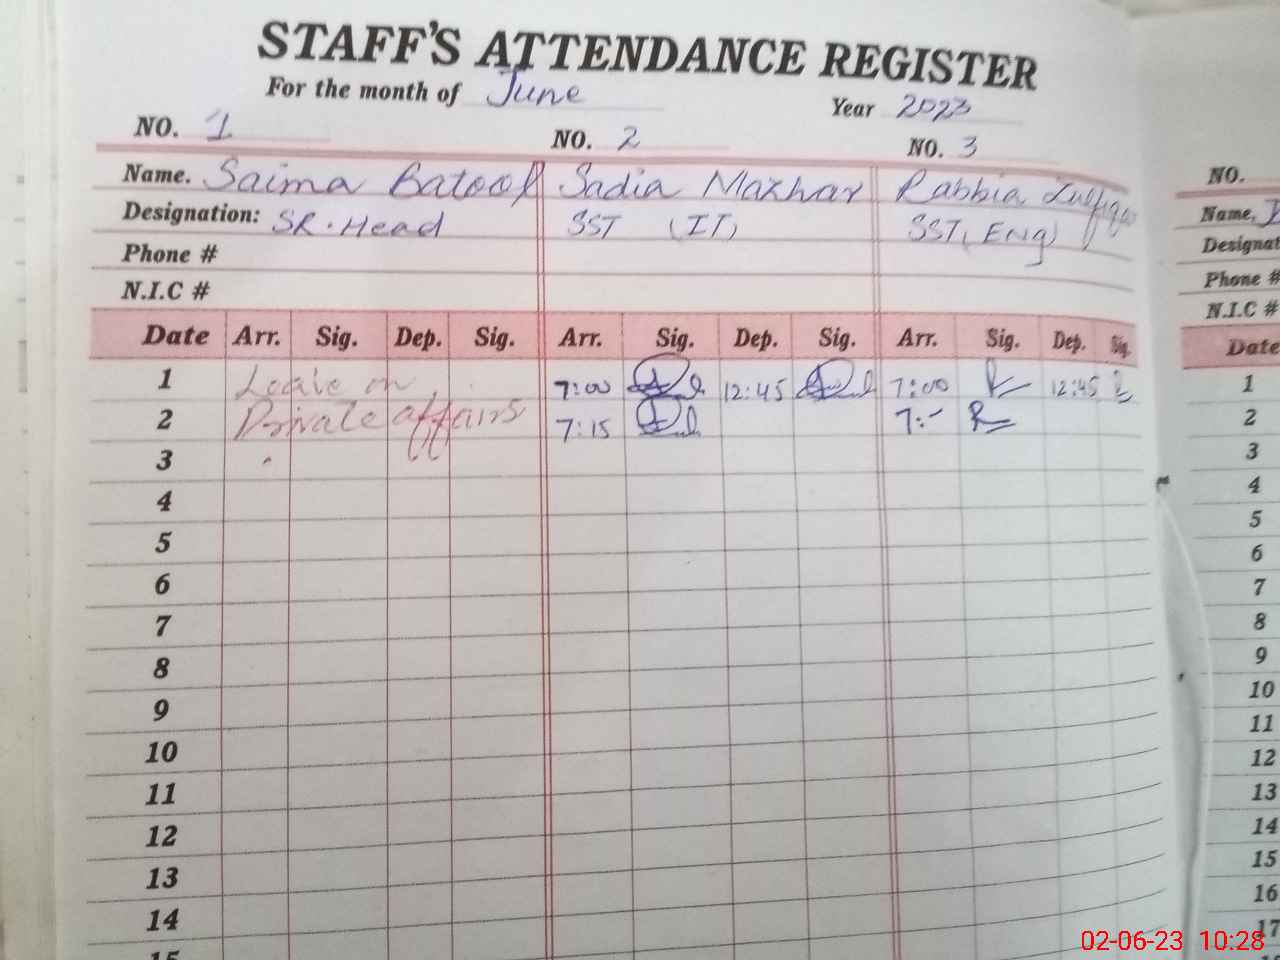 STAFF'S ATTENDANCE REGISTER
For the month of June Year 2023
NO. 1 NO. 2 NO. 3
Name. Saima Batool Sadia Mazhar Rabbia Zulfiqar
Designation: SR. Head SST (IT) SST (Eng)
Phone #
N.I.C #
Date Arr. Sig. Dep. Sig. Arr. Sig. Dep. Sig. Arr. Sig. Dep. Sig.
1 Leave on 7:00 12:45 7:00 12:45
2 Private affairs 7:15 7:-
3
4
5
6
7
8
9
10
11
12
13
14
15
NO.
Name.
Designat
Phone #
N.I.C #
Date
1
2
3
4
5
6
7
8
9
10
11
12
13
14
15
16
17
02-06-23 10:28